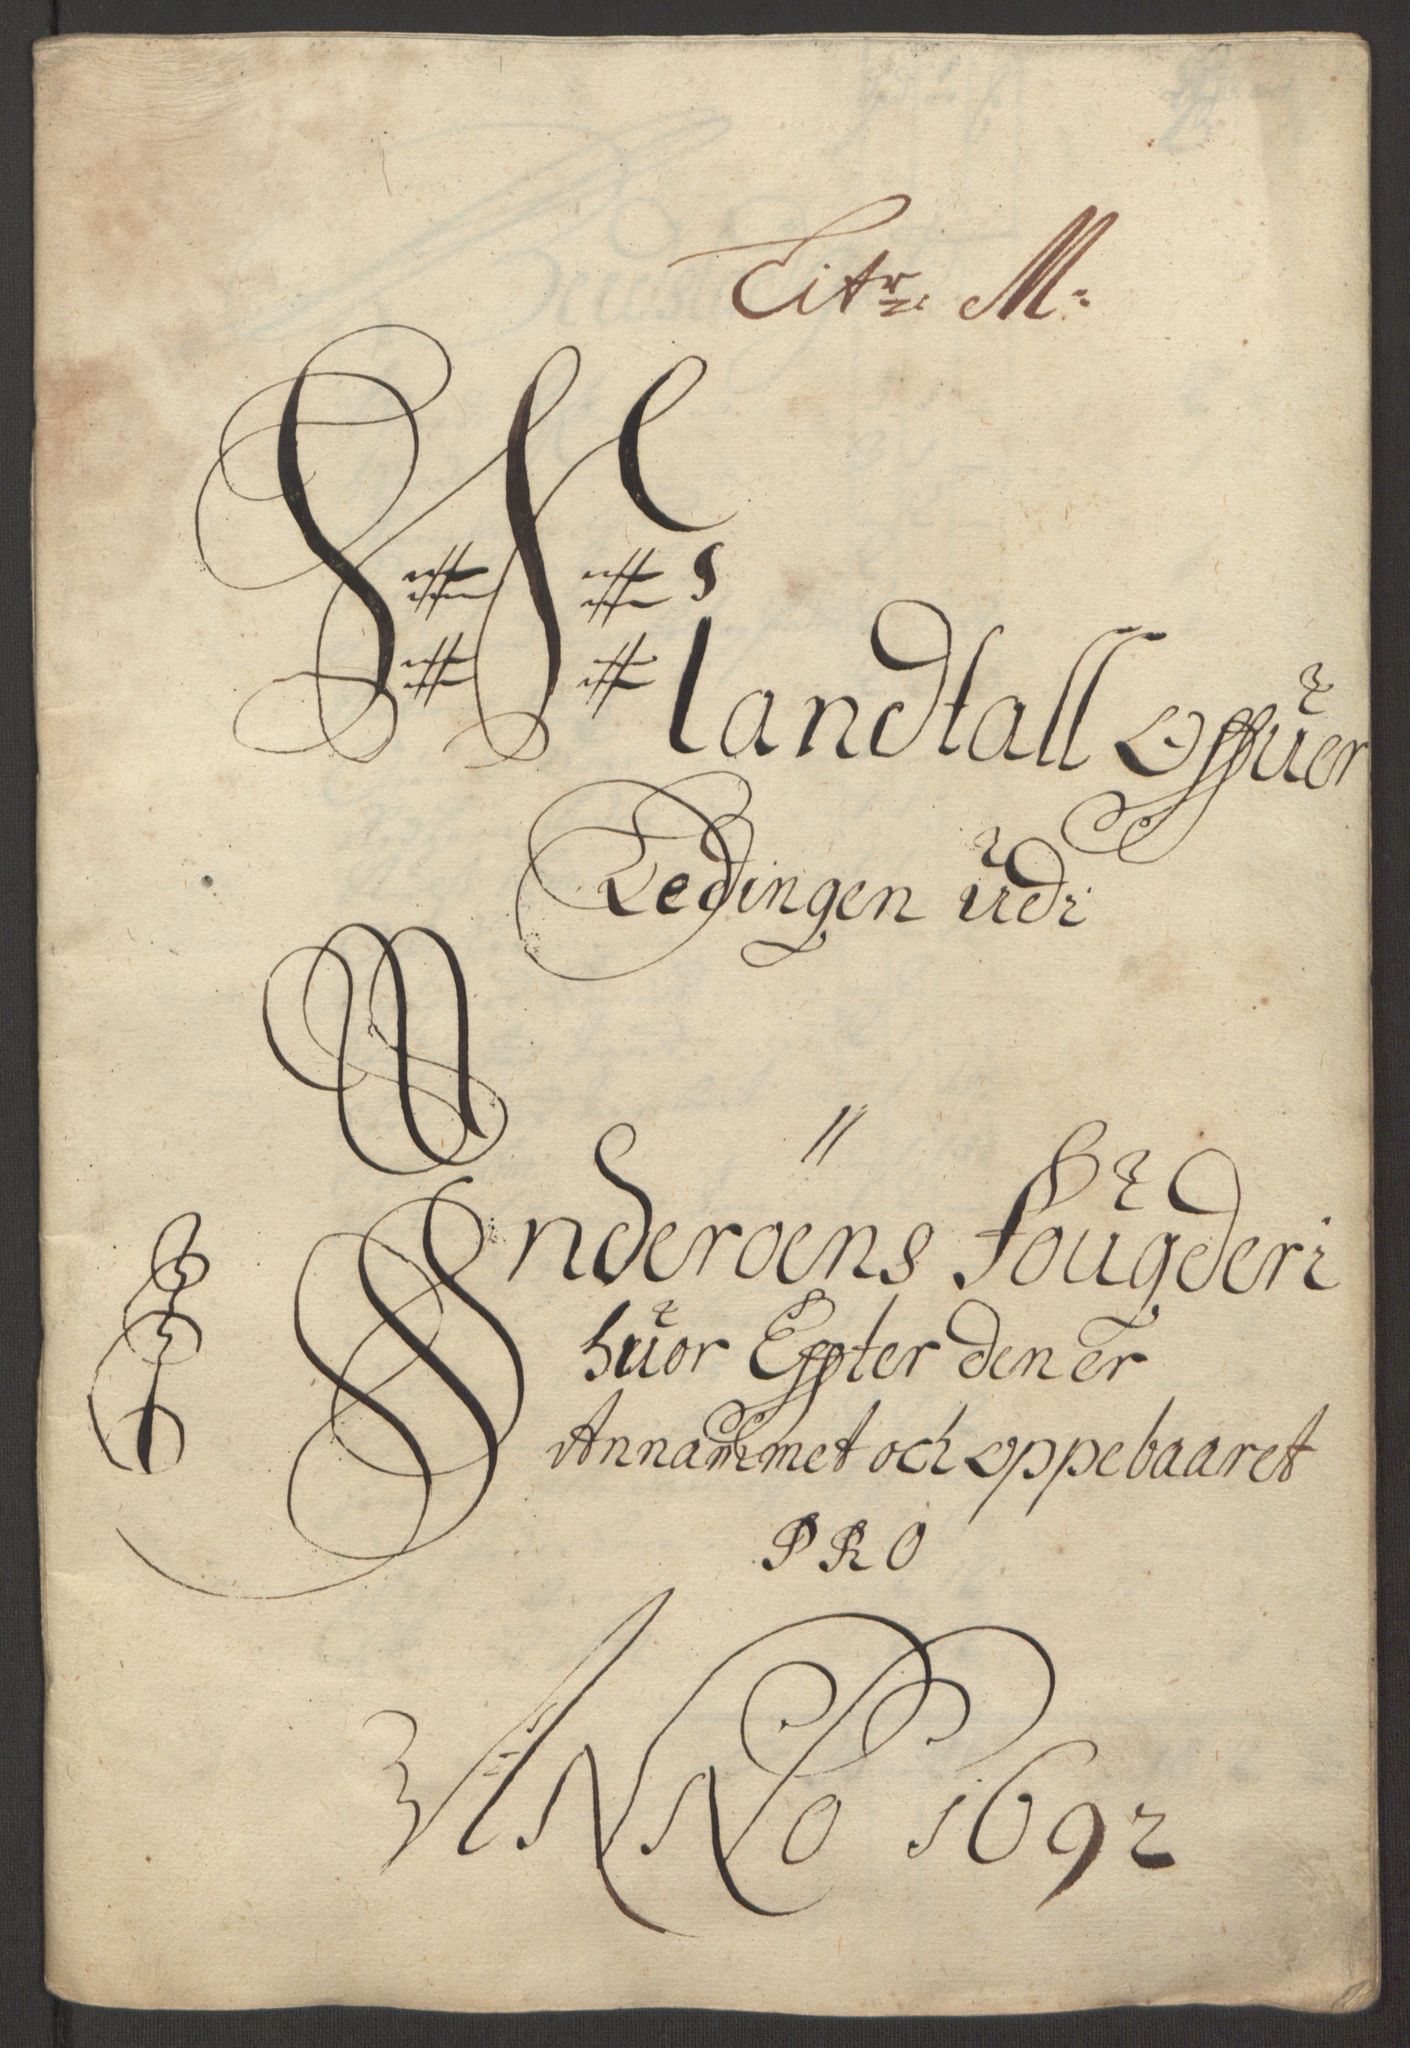 Litr: M:
Mandtall Offuer
Ledingen udi
Inderøens fougderi
huor Effter den er
Annammet och oppebaaret
PRO
ANNO 1692